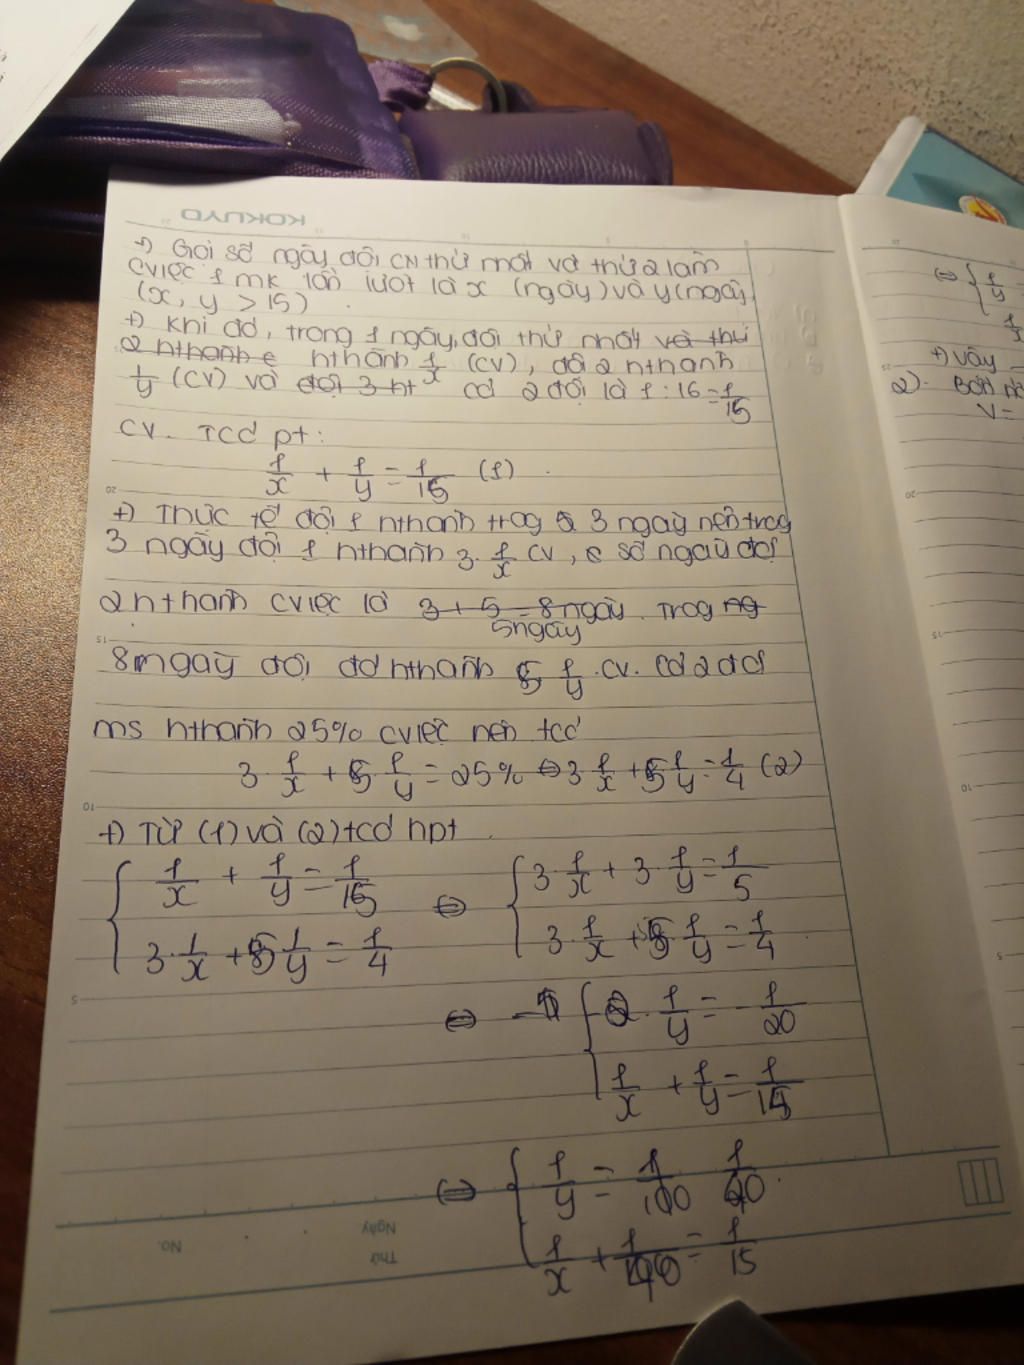 KOKUYO
→) Gọi số ngày đội CN thứ nhất và thứ 2 làm
cviệc 1 mk lần lượt là x (ngày) và y (ngày)
(x, y > 15)
+) Khi đó, trong 1 ngày, đội thứ nhất và thứ
2 nthành e nthành 1/x (CV), đội 2 nthành
1/y (CV) và đội 3 nt cả 2 đội là 1 : 16 = 1/15
CV. TCó pt:
1/x + 1/y = 1/15 (1)
+) Thực tế đội 1 nthành trog 3 ngày nên trog
3 ngày đội 1 nthành 3. 1/x CV, số ngày đội
2 nthành cviệc là 3 + 5 = 8 ngày. Trog ng
5 ngày
8 ngày đội đó nthành 5 1/y . CV. Cả 2 đội
ms nthành 25% cviệc nên tcó
3. 1/x + 5 1/y = 25% ⇔ 3. 1/x + 5 1/y = 1/4 (2)
+) Từ (1) và (2) tcó hpt
1/x + 1/y = 1/15 ⇔ 3. 1/x + 3. 1/y = 1/5
3. 1/x + 5 1/y = 1/4 3. 1/x + 5. 1/y = 1/4
⇔ -2. 1/y = - 1/20
1/x + 1/y = 1/15
⇔ 1/y = 1/100 1/40.
1/x + 1/40 = 1/15
No.
Ngày
Thứ
⇔ { 1/y =
1/x
+) Vậy
2).
V =